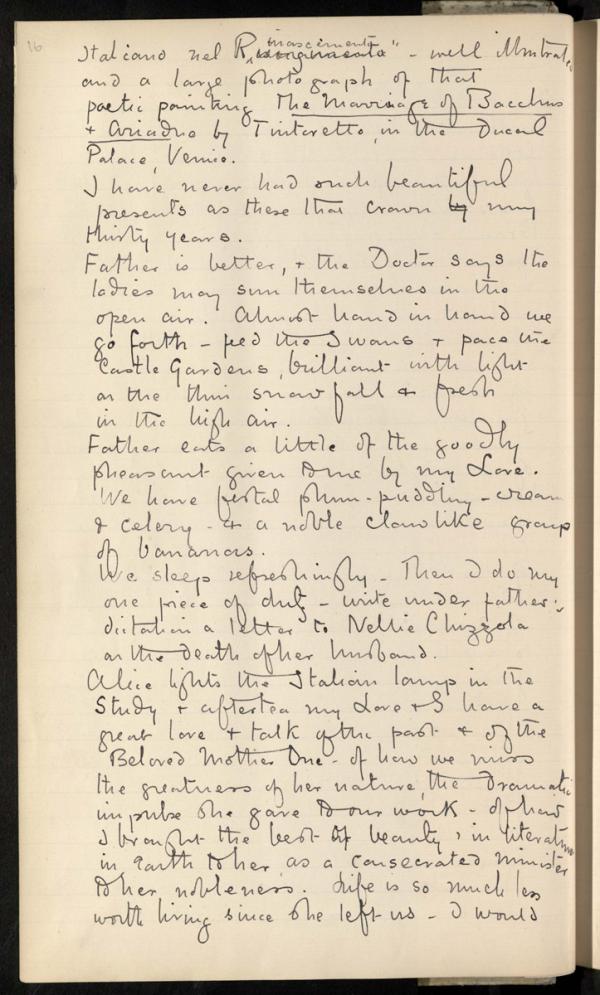 16
Italiano nel Rinascimento" - well illustrated
and a large photograph of that
poetic painting The Marriage of Bacchus
+ Ariadne by Tintoretto, in the Ducal
Palace, Venice.
I have never had such beautiful
presents as these that crown by my
thirty years.
Father is better, + the Doctor says the
ladies may sun themselves in the
open air. Almost hand in hand we
go forth - feed the Swans + pace the
Castle Gardens, brilliant with light
as the thin snow fall & fresh
in the high air.
Father eats a little of the goodly
pheasant given to me by my Love.
We have festal plum-pudding - cream
& celery - & a noble clawlike group
of bananas.
We sleep refreshingly - Then I do my
one piece of duty - write under father's
dictation a letter to Nellie Chizzola
on the death of her husband.
Alice lights the Italian lamp in the
Study + after tea my Love + I have a
great love + talk of the past + of the
Beloved Mother One - of how we miss
the greatness of her nature, the dramatic
impulse she gave to our work - of how
I brought the best of beauty, in literature
in Earth to her, as a consecrated minister
to her nobleness. Life is so much less
worth living since she left us - I would